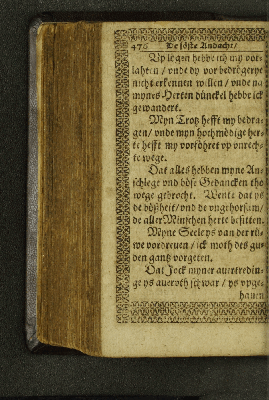 476 De söste Andacht/
Up legen hebbe ick my vor-
lahten / vnde dy vor bedregerye
nicht erkennen willen / vnde na
mynes Herten dünckel hebbe ick
gewandert.
Myn Trotz hefft my bedra-
gen / vnde myn hochmödige her-
te hefft my vorföhret vp vnrech-
te wege.
Dat alles hebben myne An-
schlege vnd böse Gedancken tho
wege gebrocht. Wente dat ys
de bößheit / vnd de vngehorsam /
de aller Minschen herte besitten.
Myne Seele ys van der rü-
we vordreuen / ick moth des gu-
den gantz vorgeten.
Dat Jock myner auertredin-
ge ys aueruth schwar / ys vpge-
hauen